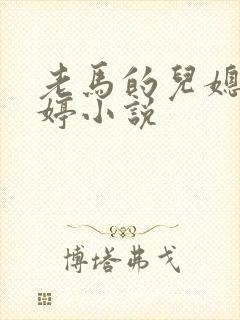 老馬的兒媳
婷小說
博塔弗戈